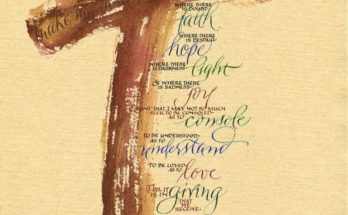 make m
WHERE THERE
IS DOUBT
faith
WHERE THERE
IS DESPAIR
hope
WHERE THERE
IS DARKNESS
light
& WHERE THERE
IS SADNESS
joy
GRANT THAT I MAY NOT SO MUCH
SEEK TO BE CONSOLED
AS TO console
TO BE UNDERSTOOD
AS TO
understand
TO BE LOVED
AS TO love
FOR IT IS IN giving
THAT WE
RECEIVE